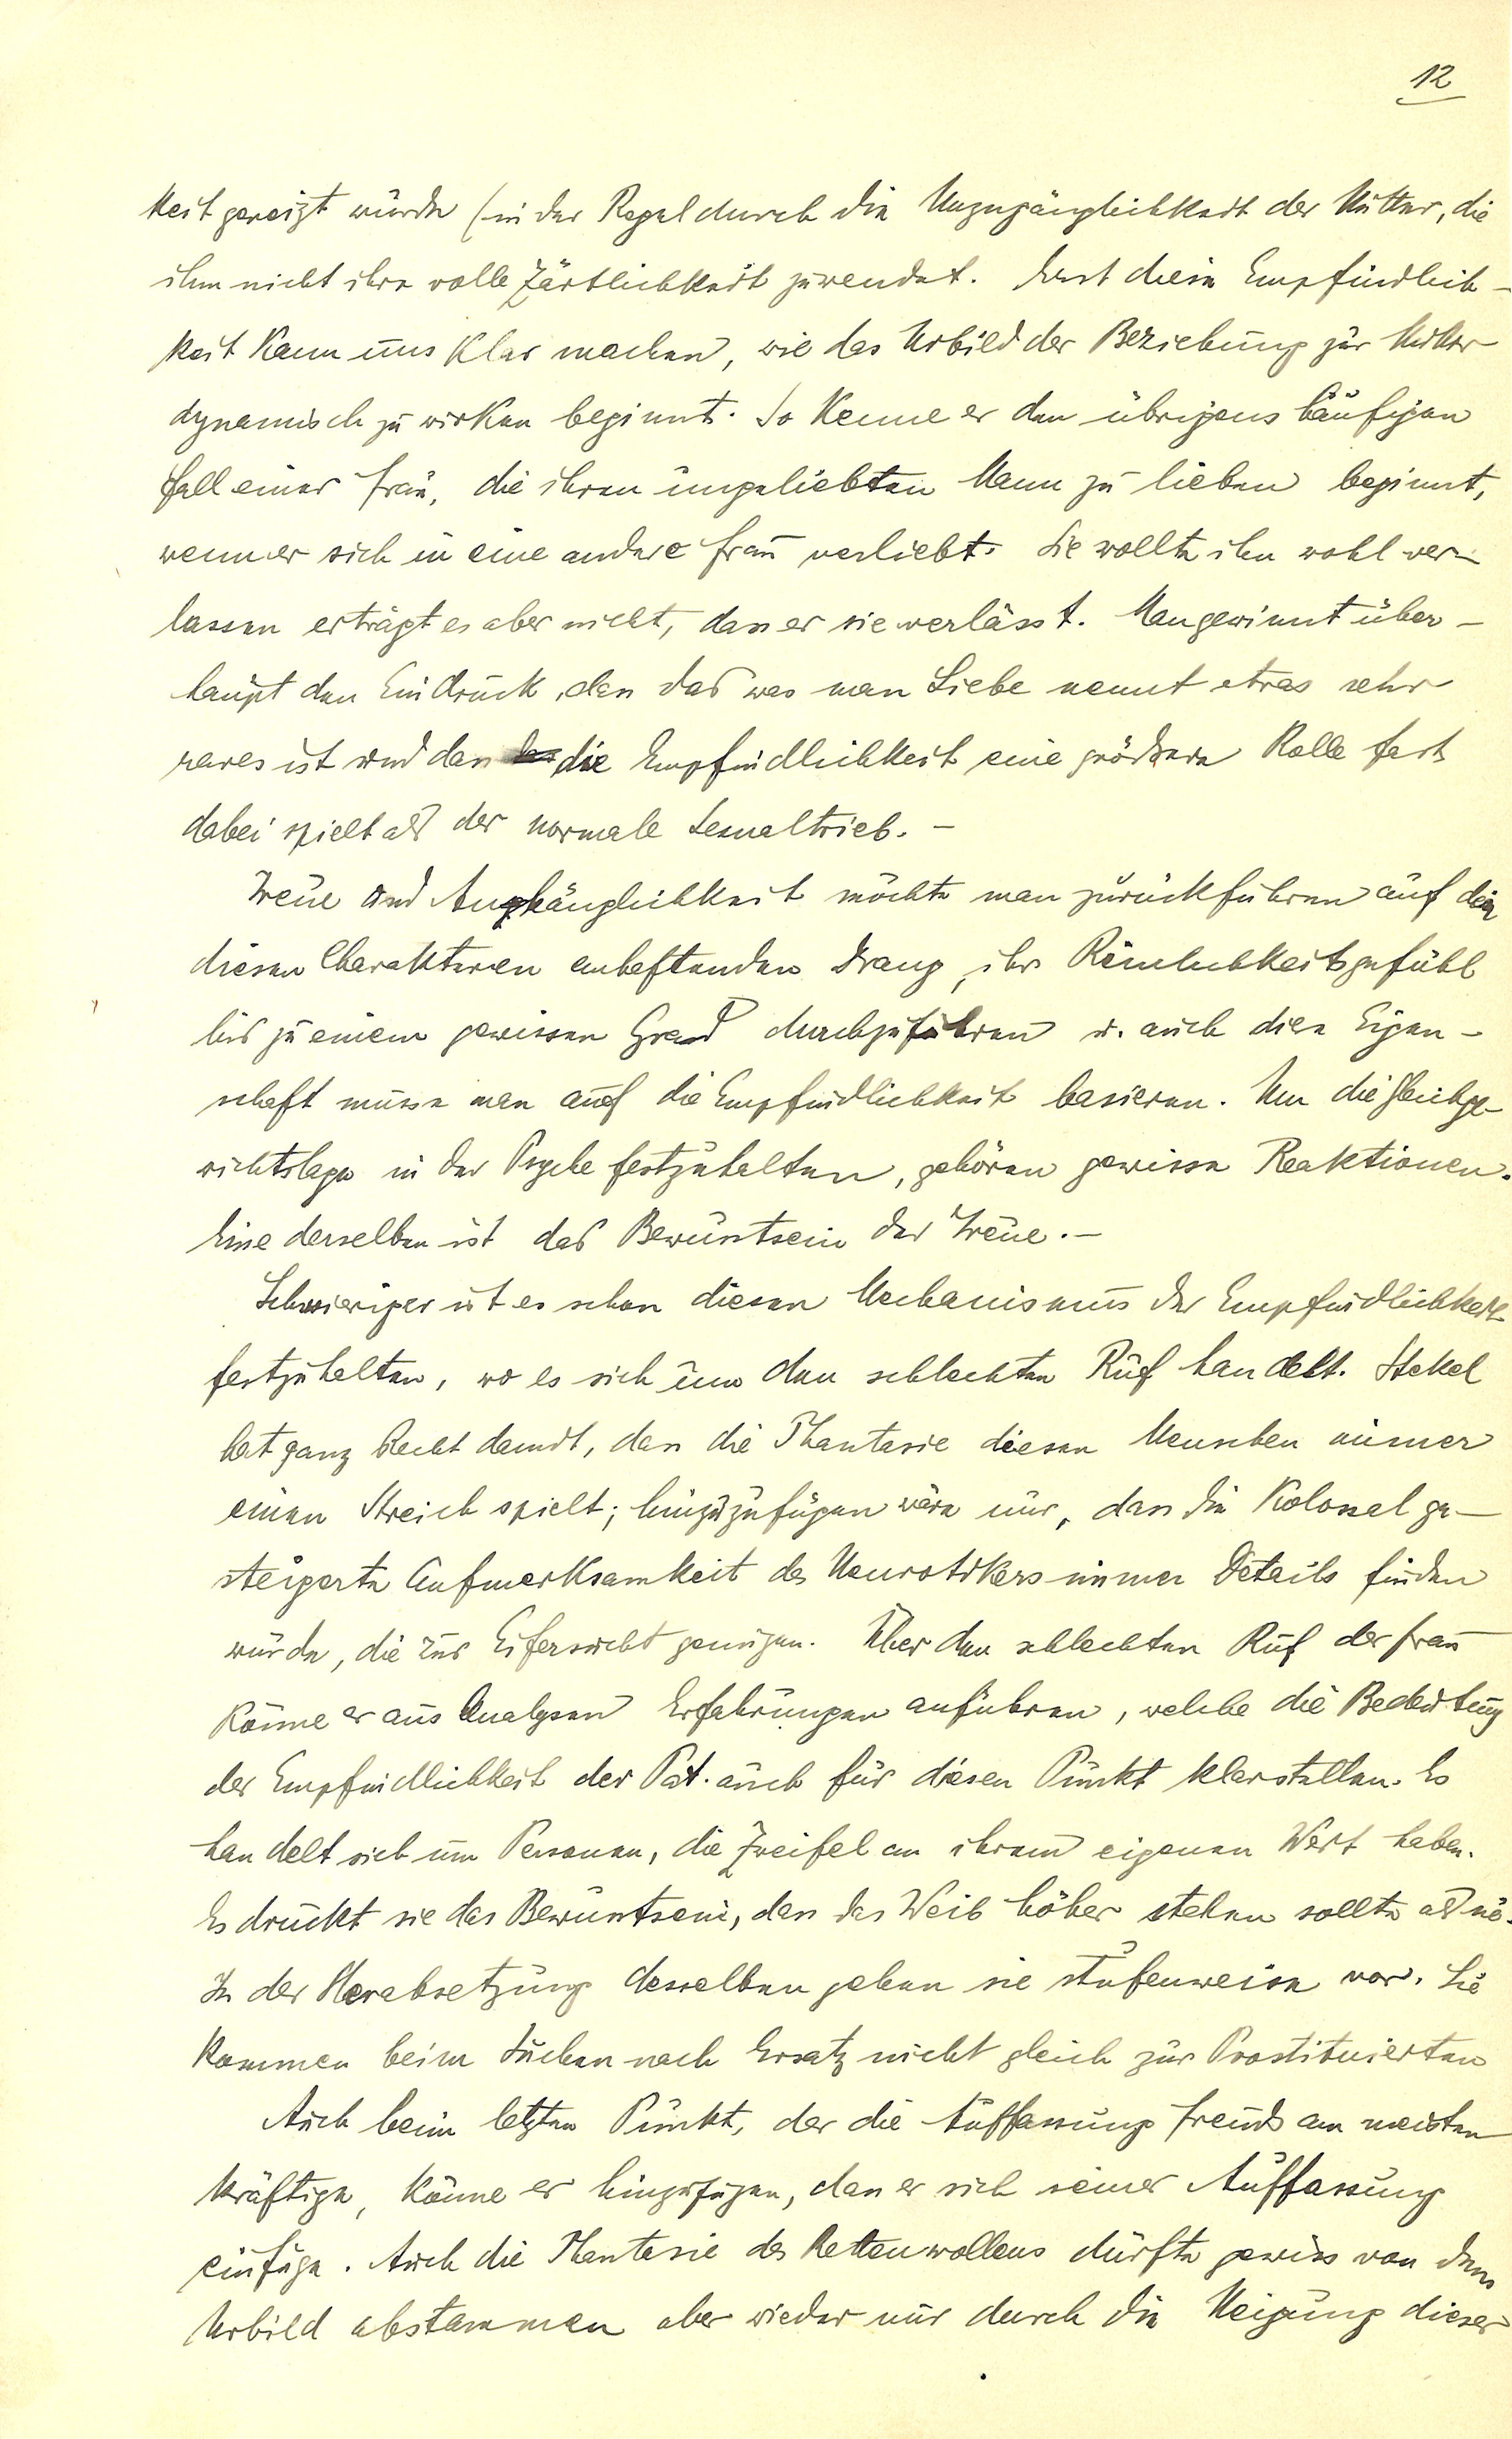 12
keit gereizt würde (in der Regel durch die Unzugänglichkeit der Mutter, die
ihm nicht ihre volle Zärtlichkeit zuwendet. Erst diese Empfindlich-
keit kann uns klar machen, wie das Urbild der Beziehung zur Mutter
dynamisch zu wirken beginnt. So kenne er den übrigens häufigen
Fall einer Frau, die ihren ungeliebten Mann zu lieben beginnt,
wenn er sich in eine andere Frau verliebt. Sie wollte ihn wohl ver-
lassen erträgt es aber nicht, dass er sie verlässt. Man gewinnt über-
haupt den Eindruck, dass das was man Liebe nennt etwas sehr
rares ist und dass die Empfindlichkeit eine grössere Rolle fast
dabei spielt als der normale Sexualtrieb. -
Treue und Anhänglichkeit möchte man zurückführen auf den
diesen Charakteren anheftenden Drang, ihr Reinlichkeitsgefühl
bis zu einem gewissen Grad durchzuführen u. auch diese Eigen-
schaft müsse man auf die Empfindlichkeit basieren. Um die Gleichge-
wichtslage in der Psyche festzuhalten, gehören gewisse Reaktionen.
Eine derselben ist das Bewusstsein der Treue. -
Schwieriger ist es schon diesen Mechanismus der Empfindlichkeit
festzuhalten, wo es sich um den schlechten Ruf handelt. Stekel
hat ganz Recht damit, dass die Phantasie diesen Menschen immer
einen Streich spielt; hinzuzufügen wäre nur, dass die kolossal ge-
steigerte Aufmerksamkeit des Neurotikers immer Details finden
würde, die zur Eifersucht genügen. Über den schlechten Ruf der Frau
könne er aus Analysen Erfahrungen anführen, welche die Bedeutung
der Empfindlichkeit der Pat. auch für diesen Punkt klarstellen. Es
handelt sich um Personen, die Zweifel an ihrem eigenen Wert haben.
Es drückt sie das Bewusstsein, dass das Weib höher stehen sollte als sie.
In der Herabsetzung desselben gehen sie stufenweise vor. Sie
kommen beim Suchen nach Ersatz nicht gleich zur Prostituierten
Auch beim letzten Punkt, der die Auffassung Freuds am meisten
kräftige, könne er hinzufügen, dass er sich seiner Auffassung
einfüge. Auch die Phantasie des Rettenwollens dürfte gewiss von dem
Urbild abstammen aber wieder nur durch die Neigung dieser